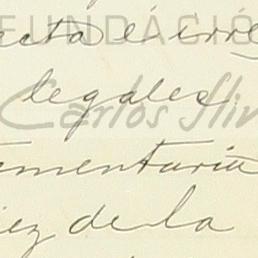 FUNDACIÓ
ecta é irre
legales
Carlos Slim
mentaria
iez de la